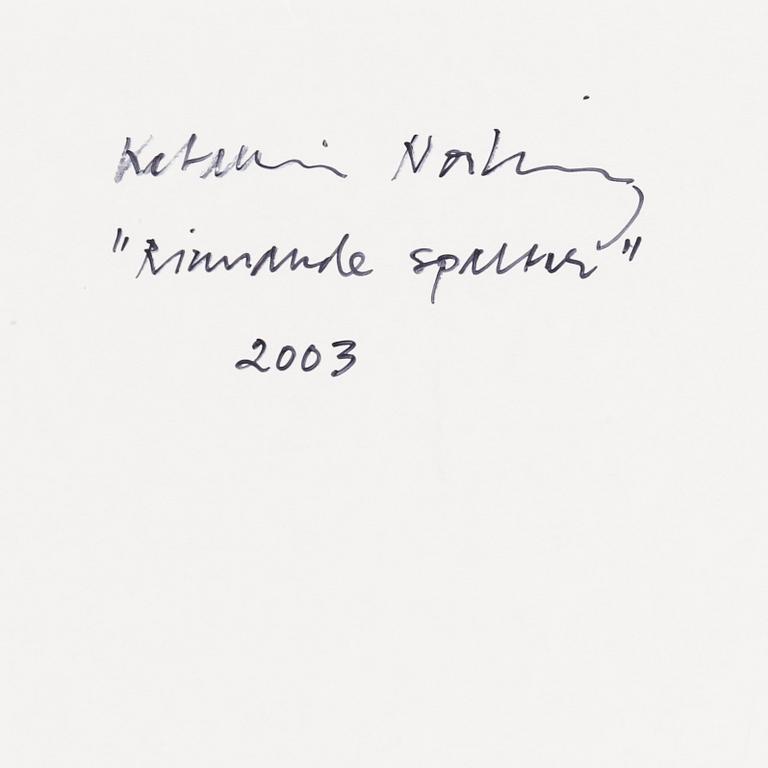 Katarina Norling
"Rinnande spaltar"
2003